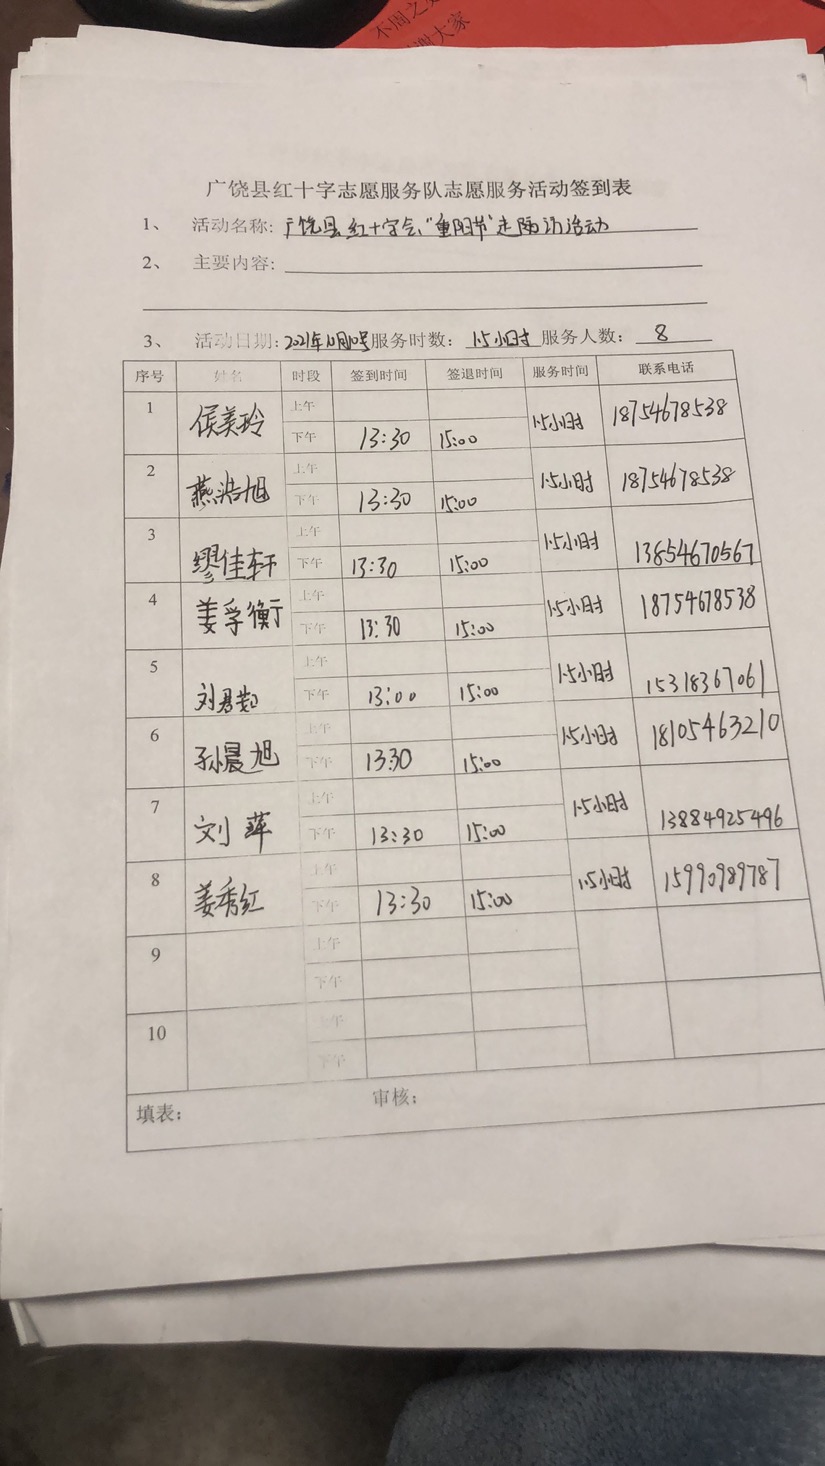 不周之处
谢大家
广饶县红十字志愿服务队志愿服务活动签到表
1、 活动名称: 广饶县红十字会“重阳节”走访活动
2、 主要内容:
3、 活动日期: 2021年10月10号 服务时数: 1.5小时 服务人数: 8
序号 姓名 时段 签到时间 签退时间 服务时间 联系电话
1 侯美玲 上午 1.5小时 18754678538
下午 13:30 15:00
2 燕浩旭 上午 1.5小时 18754678538
下午 13:30 15:00
3 缪佳轩 上午 1.5小时 13854670567
下午 13:30 15:00
4 姜孚衡 上午 1.5小时 18754678538
下午 13:30 15:00
5 刘君 上午 1.5小时 15318367061
下午 13:00 15:00
6 孙晨旭 上午 1.5小时 18105463210
下午 1330 15:00
7 刘萍 上午 1.5小时 13884925496
下午 13:30 15:00
8 姜秀红 上午 1.5小时 15990989787
下午 13:30 15:00
9 上午
下午
10 上午
下午
填表: 审核: